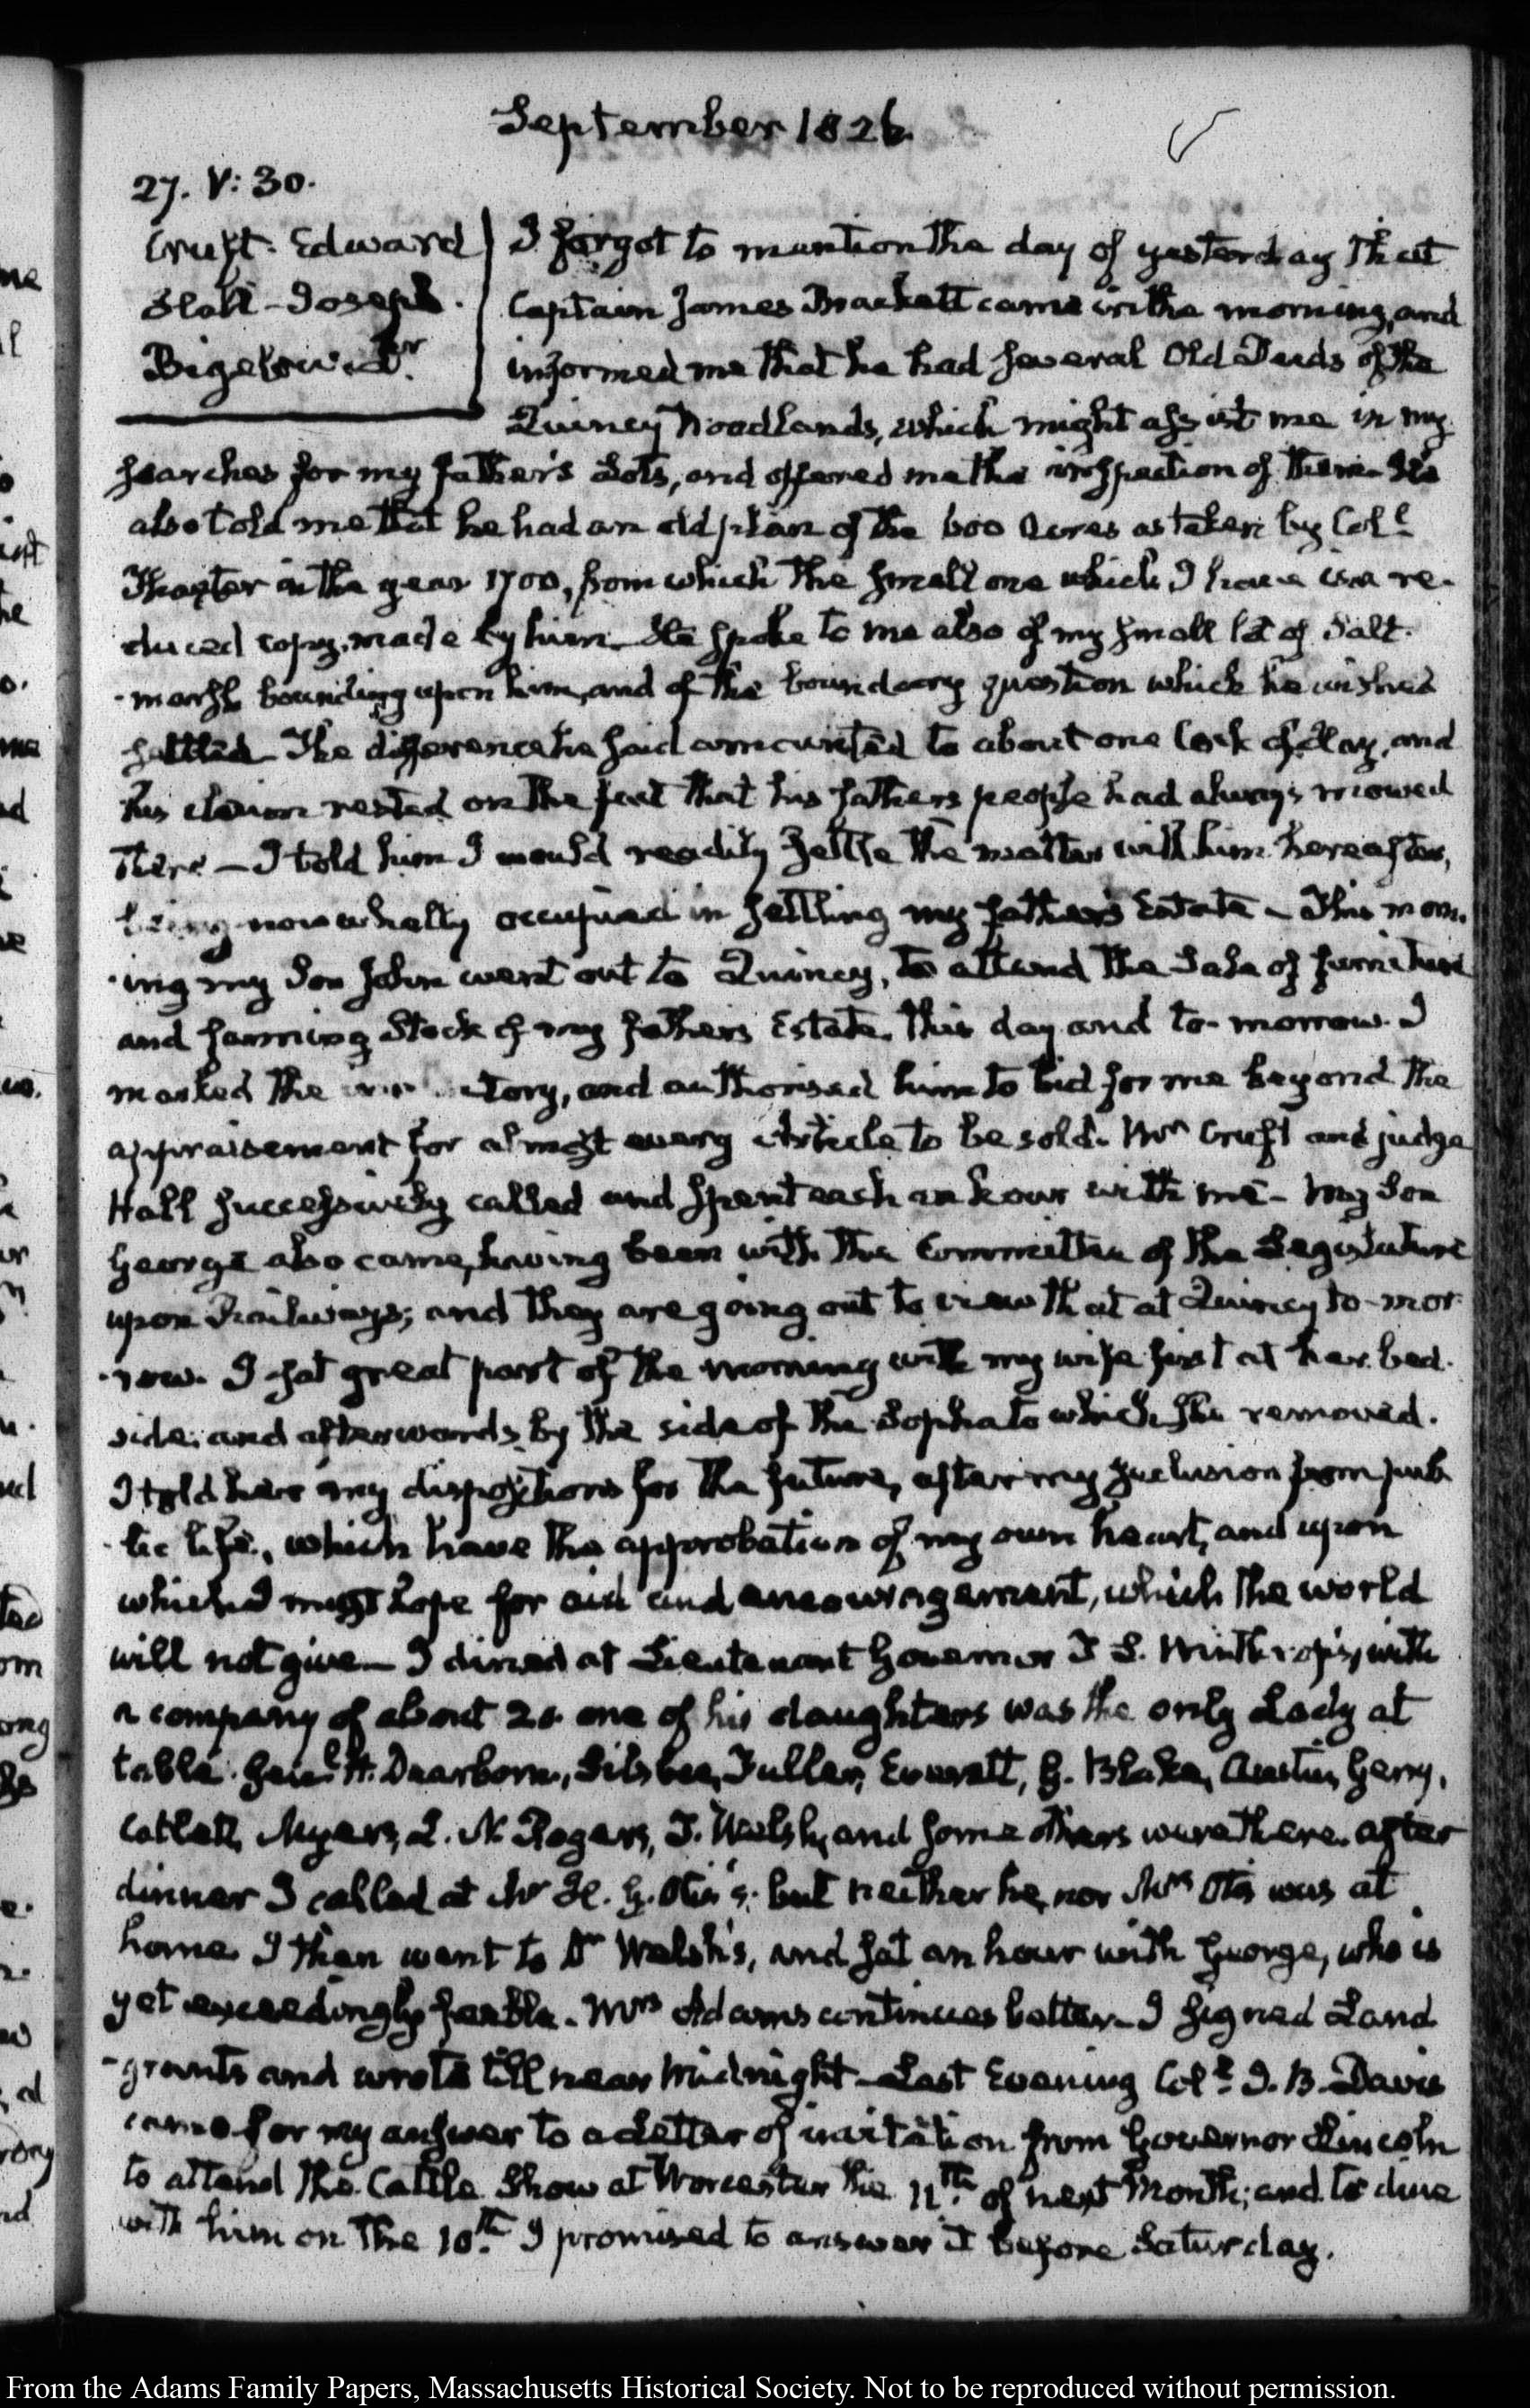 September 1826.
27. V: 30.
Cruft. Edward
Hall - Joseph.
Bigelow. Dr.
I forgot to mention the day of yesterday that
Captain James Brackett came in the morning, and
informed me that he had several Old Deeds of the
Quincy Woodlands, which might assist me in my
searches for my father's Lots, and offered me the inspection of them. He
also told me that he had an old plan of the 600 Acres as taken by Coll.
Thaxter in the year 1700, from which the small one which I have is a re-
duced copy, made by him. He spoke to me also of my small lot of Salt.
-marsh bounding upon him, and of the boundary question which he wished
settled. The difference he said amounted to about one Cock of Hay, and
his claim rested on the fact that his fathers people had always mowed
there — I told him I would readily settle the matter with him hereafter,
being now wholly occupied in settling my father's Estate — This morn.
-ing my Son John went out to Quincy, to attend the Sale of furniture
and farming Stock of my fathers Estate, this day and to-morrow. I
marked the tory, and authorised him to bid for me beyond the
appraisement for almost every Article to be sold. Mr Cruft and judge
Hall successively called and spent each an hour with me - My Son
George also came, having been with the Committee of the Legislature
upon Railways; and they are going out to view that at Quincy to-mor-
-row. I sat great part of the morning with my wife first at her bed.
side, and afterwards by the side of the Sopha to which she removed.
I told her my dispositions for the future, after my seclusion from pub
-lic life, which have the approbation of my own heart, and upon
which I must hope for aid and encouragement, which the world
will not give — I dined at Lieutenant Governor T. L. Winthrop's, with
a company of about 20. one of his daughters was the only Lady at
table. Genl. H. Dearborn, Silsbee, Fuller, Everett, G. Blake, Austin, Gerry,
Catlett, Myers, D. N. Rogers, T. Welsh, and some others were there. After
dinner I called at Mr H. G. Otis's; but neither he, nor Mrs Otis was at
home. I then went to Dr Welsh's, and sat an hour with George, who is
yet exceedingly feeble. Mrs Adams continues better. I signed Land
-grants and wrote till near Midnight — Last Evening Coll. I. B. Davis
came for my answer to a Letter of invitation from Governor Lincoln
to attend the Cattle Show at Worcester the 11th. of next Month; and to dine
with him on the 10th. I promised to answer it before Saturday.
From the Adams Family Papers, Massachusetts Historical Society. Not to be reproduced without permission.